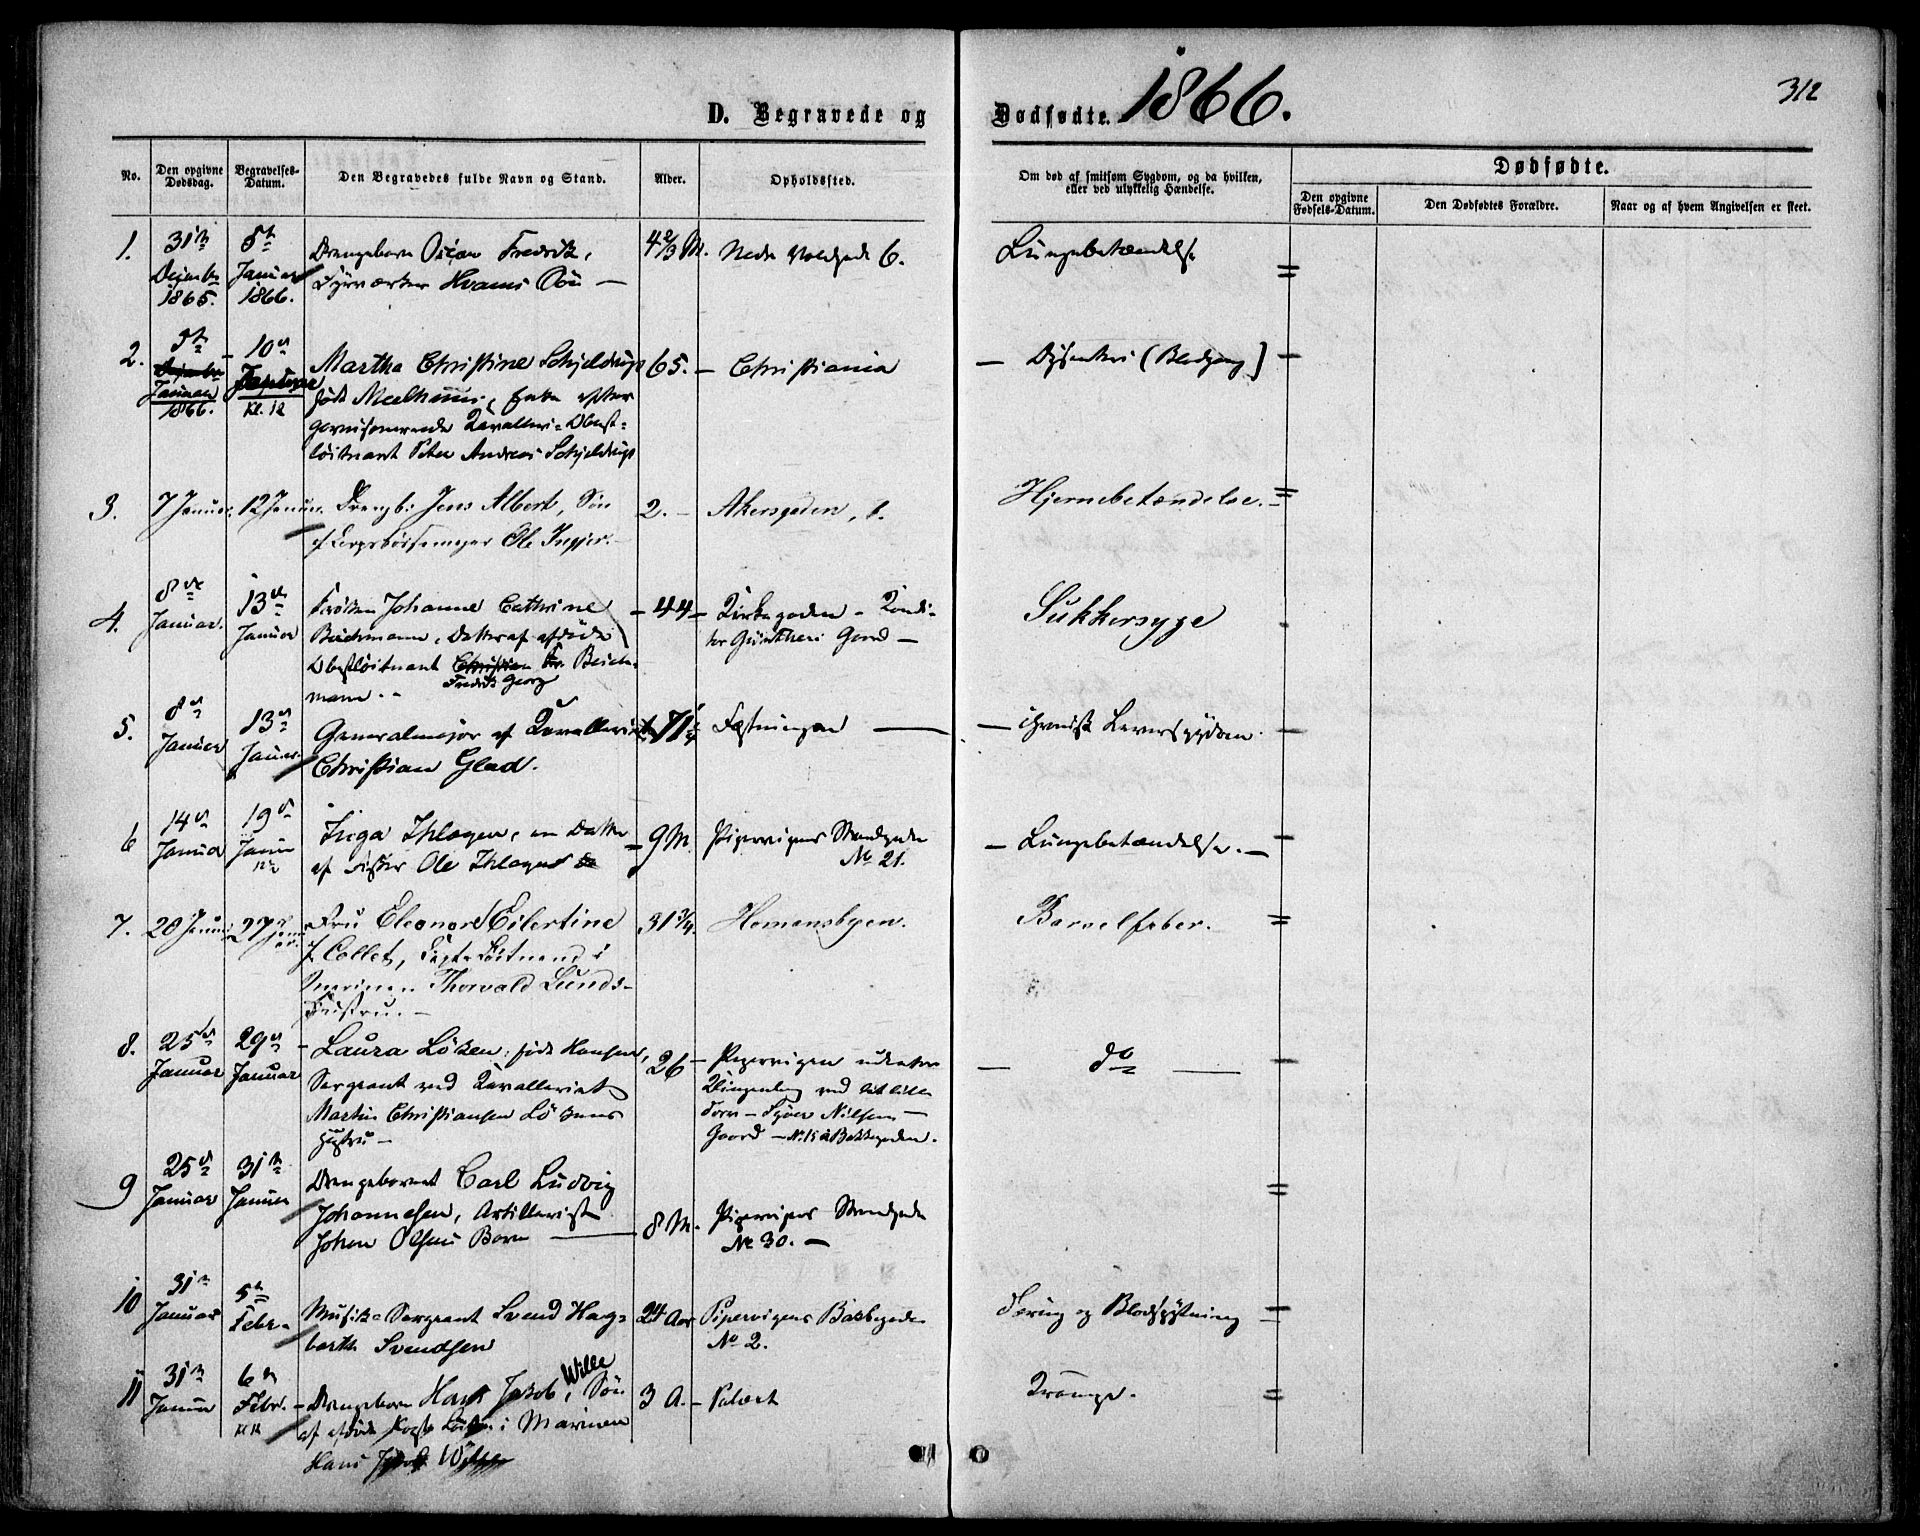 D. Begravede og Dødfødte. 1866.
312
No.
Den opgivne Dødsdag.
Begravelses-Datum.
Den Begravedes fulde Navn og Stand.
Alder.
Opholdssted.
Om død af smitsom Sygdom, og da hvilken,
eller ved ulykkelig Hændelse.
Dødfødte.
Den opgivne Fødsels-Datum.
Den Dødfødtes Forældre.
Naar og af hvem Angivelsen er skeet.
1.
31te
1865.
5te Januar
1866.
Drengebarn Oscar Fredrik,
Fyrværker Hvams Søn —
4 2/3 M.
Nedre Voldgade 6.
Lungebetændelse
2.
5te
Januar
1866.
10de
Kl. 12
Martha Christine Schjeldrup
født Enke efter
Kavalleri-Oberst-
løitnant Peter Andreas Schjeldrup
65. —
Christiania
— Dysenteri (Blodgang)
3.
7 Januar.
12 Januar.
Drengb: Jens Albert, Søn
af Ole
2. —
Akersgaden, 1.
Hjernebetændelse.
4.
8de
Januar.
13de
Januar
Frøken Johanne Cathrine
Beichmann, Datter af afdøde
Oberstløitnant Christian Fr. Beich-
Fredrik Georg
mann. -
— 44 —
Kirkegaden - Kondi-
tor Günthers Gaard —
Sukkersyge
5.
8de
Januar
13de
Januar.
Generalmajor af Kavalleriet
Christian Glad.
71
Fæstningen —
— chronisk Leversygdom.
6
14de
Januar
19de
Januar
Inga Thlagen, en Datter
af Ole
9 M.
Pipervigens Strandgade
No 21.
— Lungebetændelse. —
7.
20 Januar
27 Januar.
Fru Eleonore Eilertine
f. Collet, Løitnant i
Marinen Thorvald Lunds
Hustru. —
31 3/4.
Homansbyen.
Barselfeber.
8.
25de
Januar
29de
Januar
Laura Løken, født Hansen,
Sergeant ved Kavalleriet
Martin Christiansen Løkens
Hustru —
26 —
Pipervigen
Klingenberg ved
— Syver Nilsens —
Gaard — No. 15 Bakkegaden.
— do —
9
25de
Januar
31te
Januar
Drengebarnet Carl Ludvig
Johannesen, Artillerist
Johan Olsens Barn —
8 M.
Pipervigens Strandgade
No 30. —
10
31te
Januar
5te
Febr.
Musik-Sergeant Svend Hag-
barth Svendsen
24 Aar
Pipervigens Bakkegade
No 2.
Tæring og Blodspytning
11
31te
Januar
6te
Febr.
Kl 12
Drengebarn Hans Jakob, Wille Søn
af afdøde i Marinen
Hans
3 A. —
Palæet
Krampe.